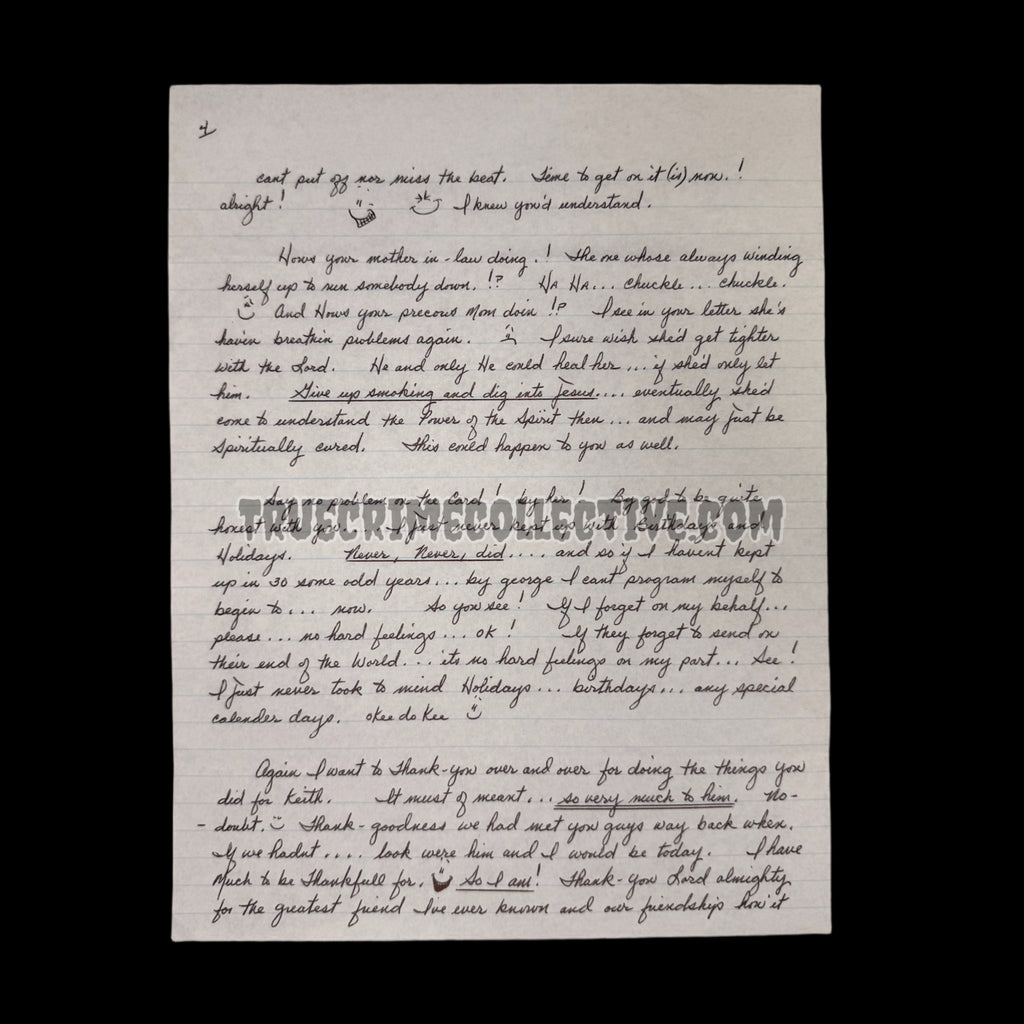 4
cant put off nor miss the beat. Time to get on it (is) now.!
alright! I knew you'd understand.
Hows your mother in-law doing.! The one whose always winding
herself up to run somebody down.!? HA HA... chuckle... chuckle.
And Hows your precous Mom doin!? I see in your letter she's
haven breathin problems again. I sure wish she'd get tighter
with the Lord. He and only He could heal her... if she'd only let
him. Give up smoking and dig into Jesus.... eventually she'd
come to understand the Power of the Spirit then... and may just be
Spiritually cured. This could happen to you as well.
Say no problem on the Card! by her! By god to be quite
honest with you.... I just never kept up with Birthdays and
Holidays. Never, Never, did.... and so if I havent kept
up in 30 some odd years... by george I cant program myself to
begin to... now. So you see! If I forget on my behalf...
please... no hard feelings... OK! If they forget to send on
their end of the World... its no hard feelings on my part... See!
I just never took to mind Holidays... birthdays... any special
calender days. okee do Kee
TRUECRIMECOLLECTIVE.COM
Again I want to Thank-you over and over for doing the things you
did for Keith. It must of meant... so very much to him. No-
-doubt. Thank-goodness we had met you guys way back when.
If we hadnt.... look were him and I would be today. I have
Much to be Thankfull for. So I am! Thank-you Lord almighty
for the greatest friend I've ever known and our friendship how it